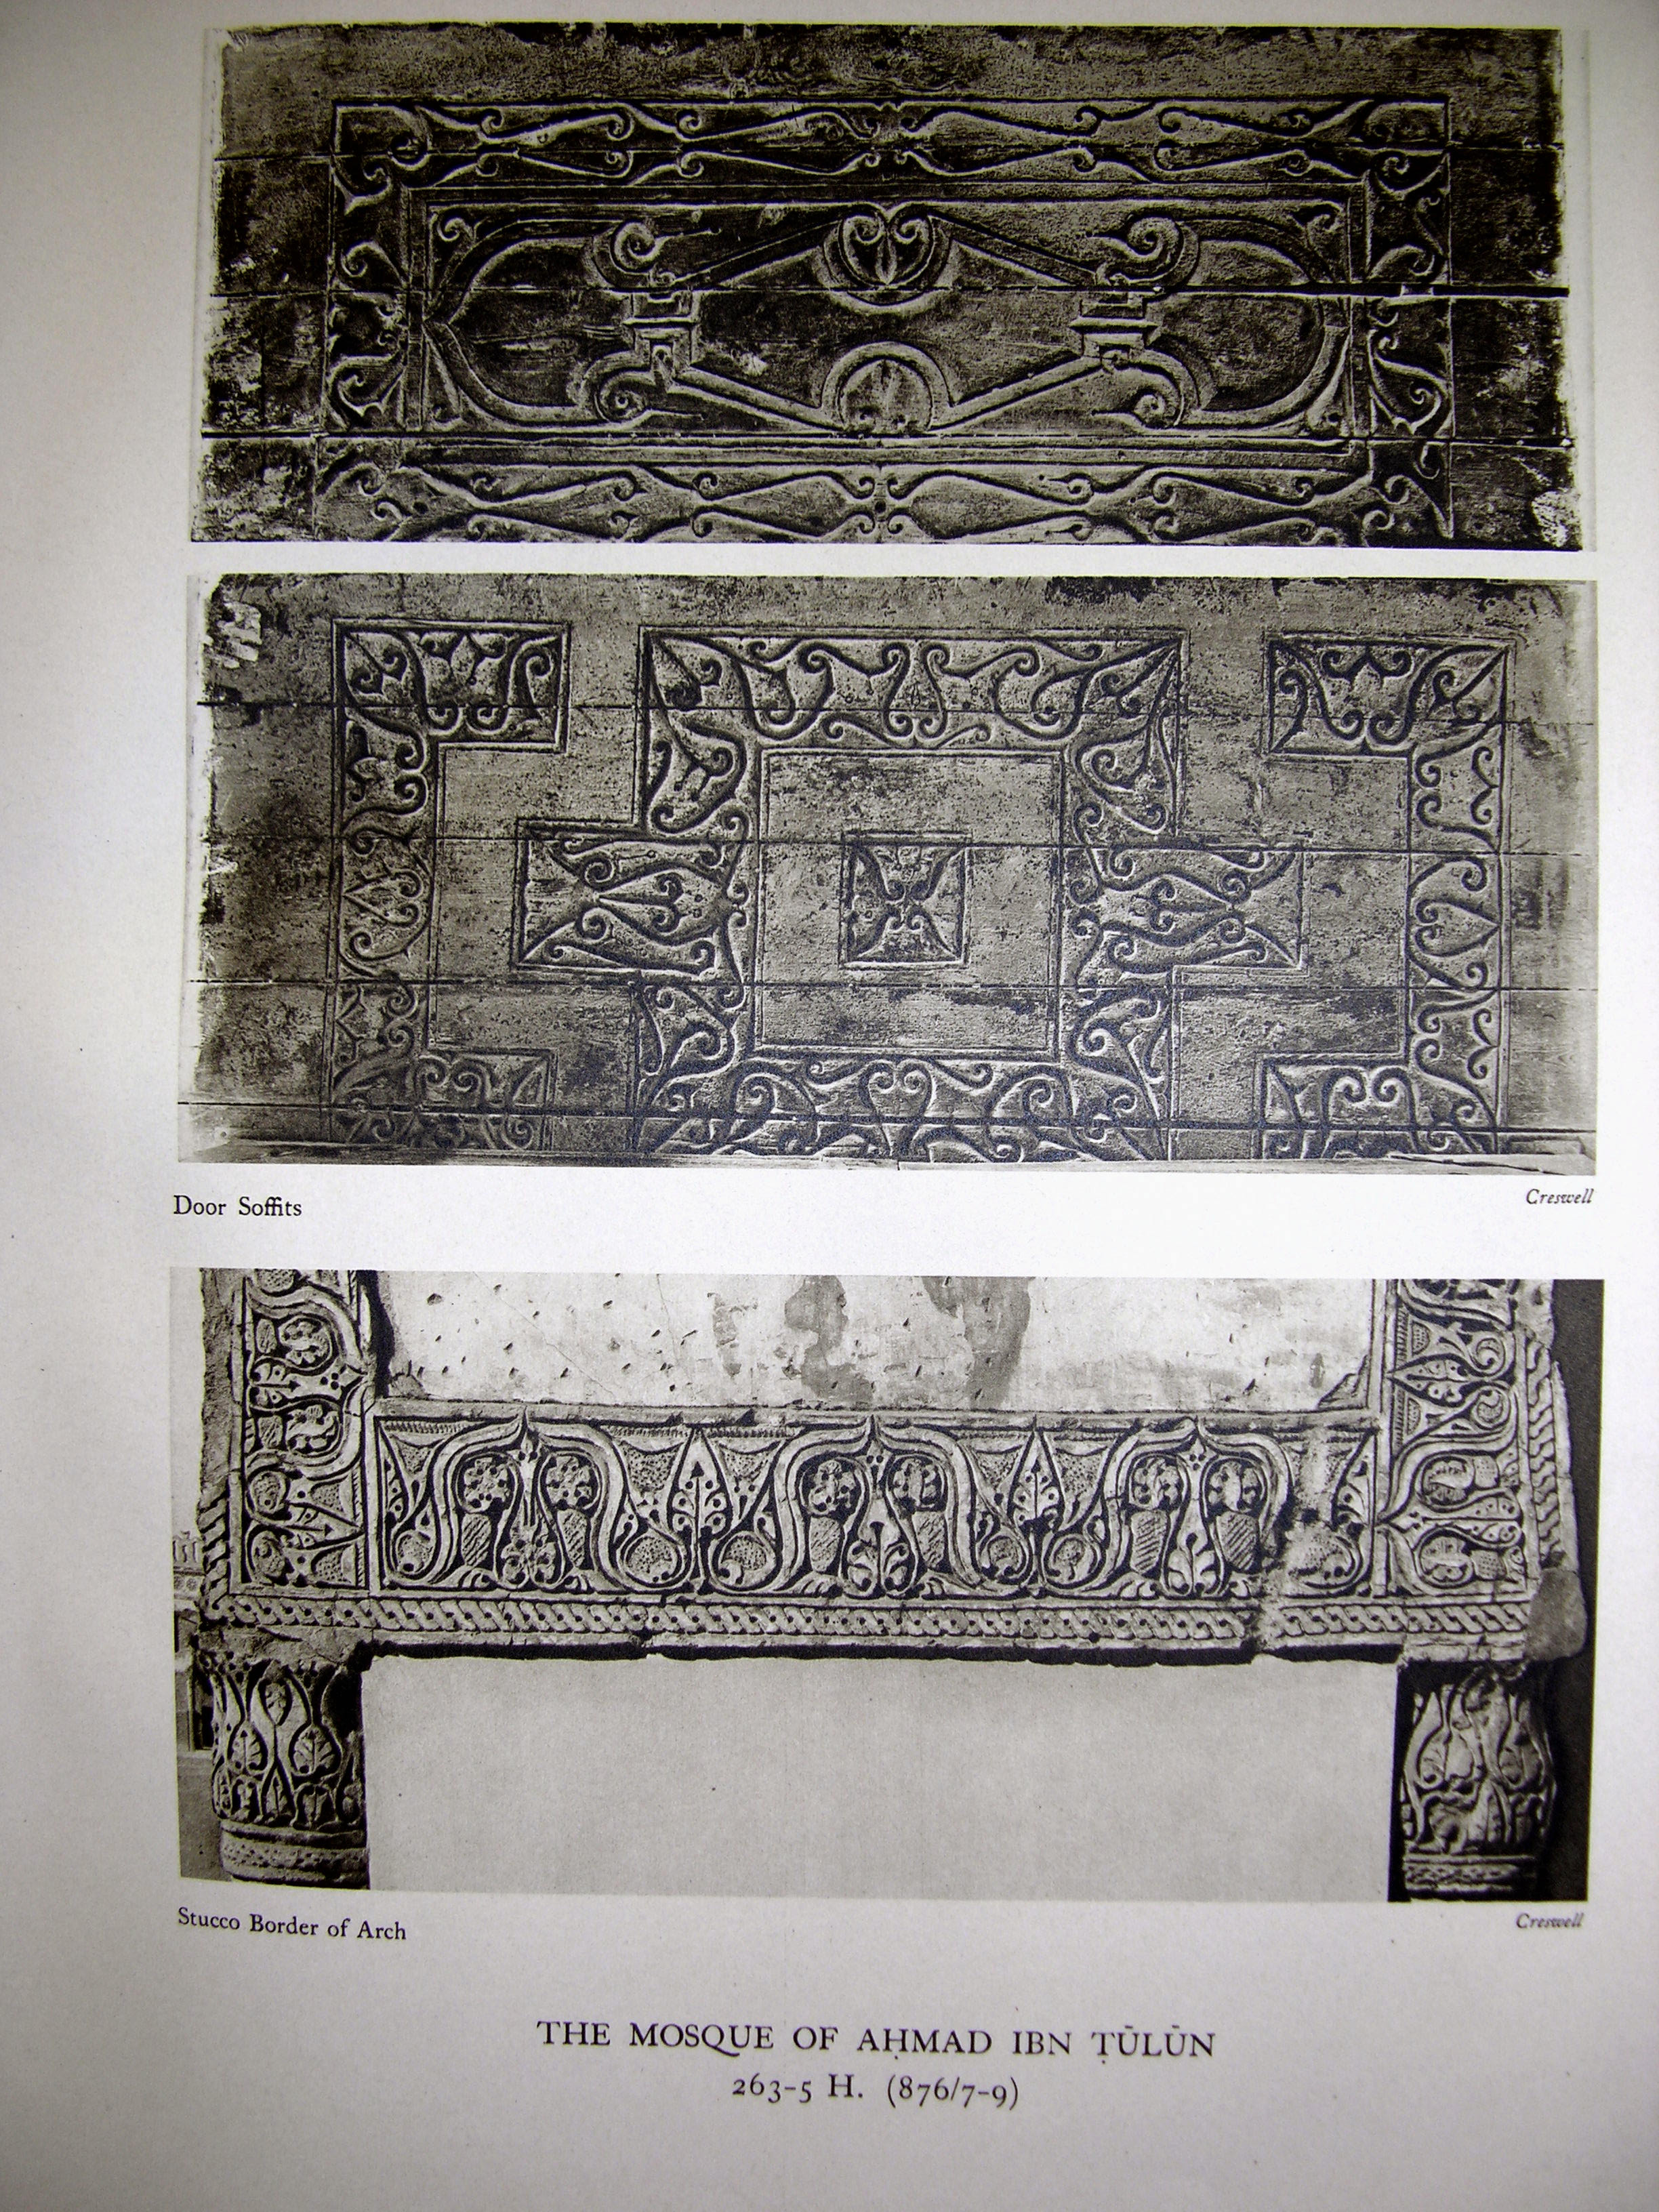 Door Soffits
Creswell
Stucco Border of Arch
Creswell
THE MOSQUE OF AḤMAD IBN ṬŪLŪN
263-5 H. (876/7-9)